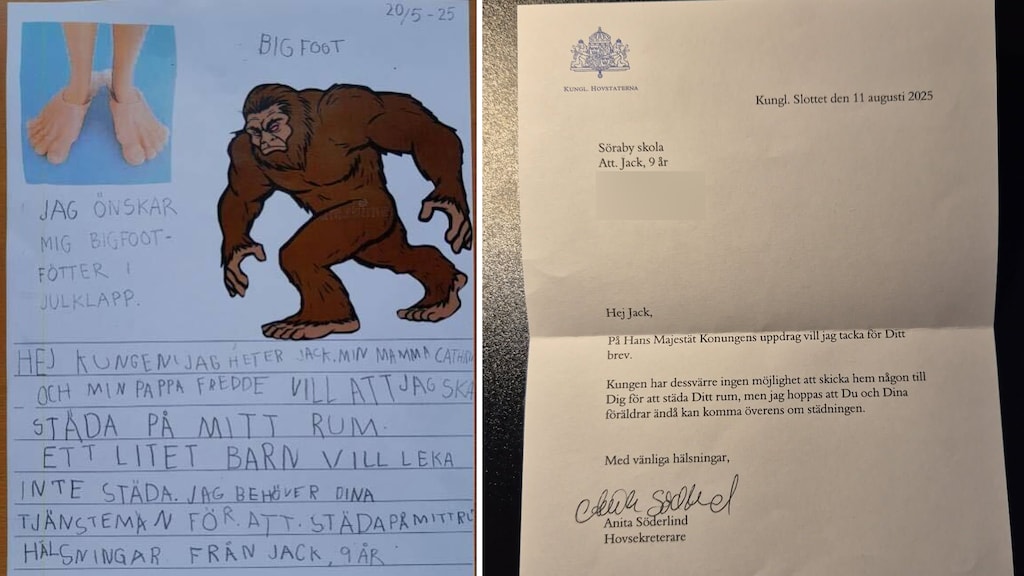 20/5-25
BIGFOOT
JAG ÖNSKAR
MIG BIGFOOT-
FÖTTER I
JULKLAPP.
HEJ KUNGEN! JAG HETER JACK. MIN MAMMA
OCH MIN PAPPA FREDDE VILL ATT JAG SKA
STÄDA PÅ MITT RUM.
ETT LITET BARN VILL LEKA
INTE STÄDA. JAG BEHÖVER DINA
TJÄNSTEMÄN FÖR ATT. STÄDA PÅ MITT
HÄLSNINGAR FRÅN JACK, 9 ÅR
KUNGL. HOVSTATERNA
Kungl. Slottet den 11 augusti 2025
Söraby skola
Att. Jack, 9 år
Hej Jack,
På Hans Majestät Konungens uppdrag vill jag tacka för Ditt
brev.
Kungen har dessvärre ingen möjlighet att skicka hem någon till
Dig för att städa Ditt rum, men jag hoppas att Du och Dina
föräldrar ändå kan komma överens om städningen.
Med vänliga hälsningar,
Anita Söderlind
Anita Söderlind
Hovsekreterare